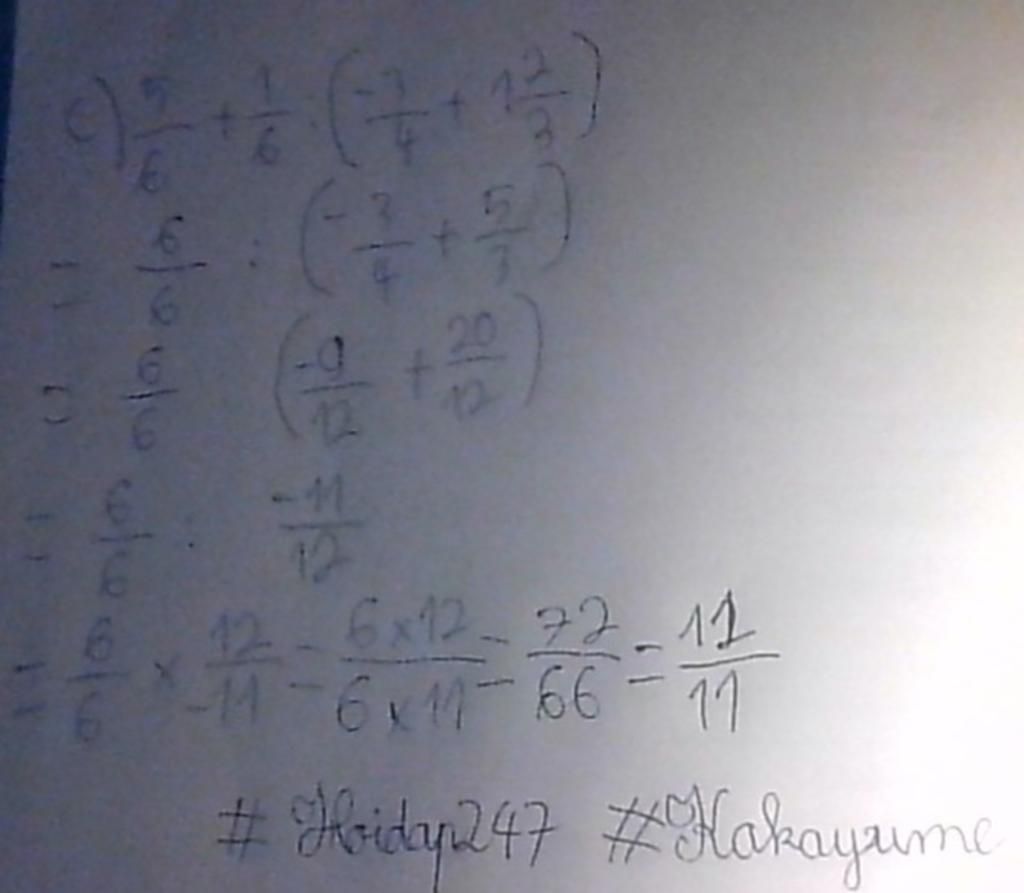 c) 5/6 + 1/6 : (-3/4 + 1 2/3)
= 6/6 : (-3/4 + 5/3)
= 6/6 (-9/12 + 20/12)
= 6/6 : -11/12
= 6/6 x 12/-11 = 6x12/6x11 = 72/66 = 12/11
# Hoidap247 #Kakayume